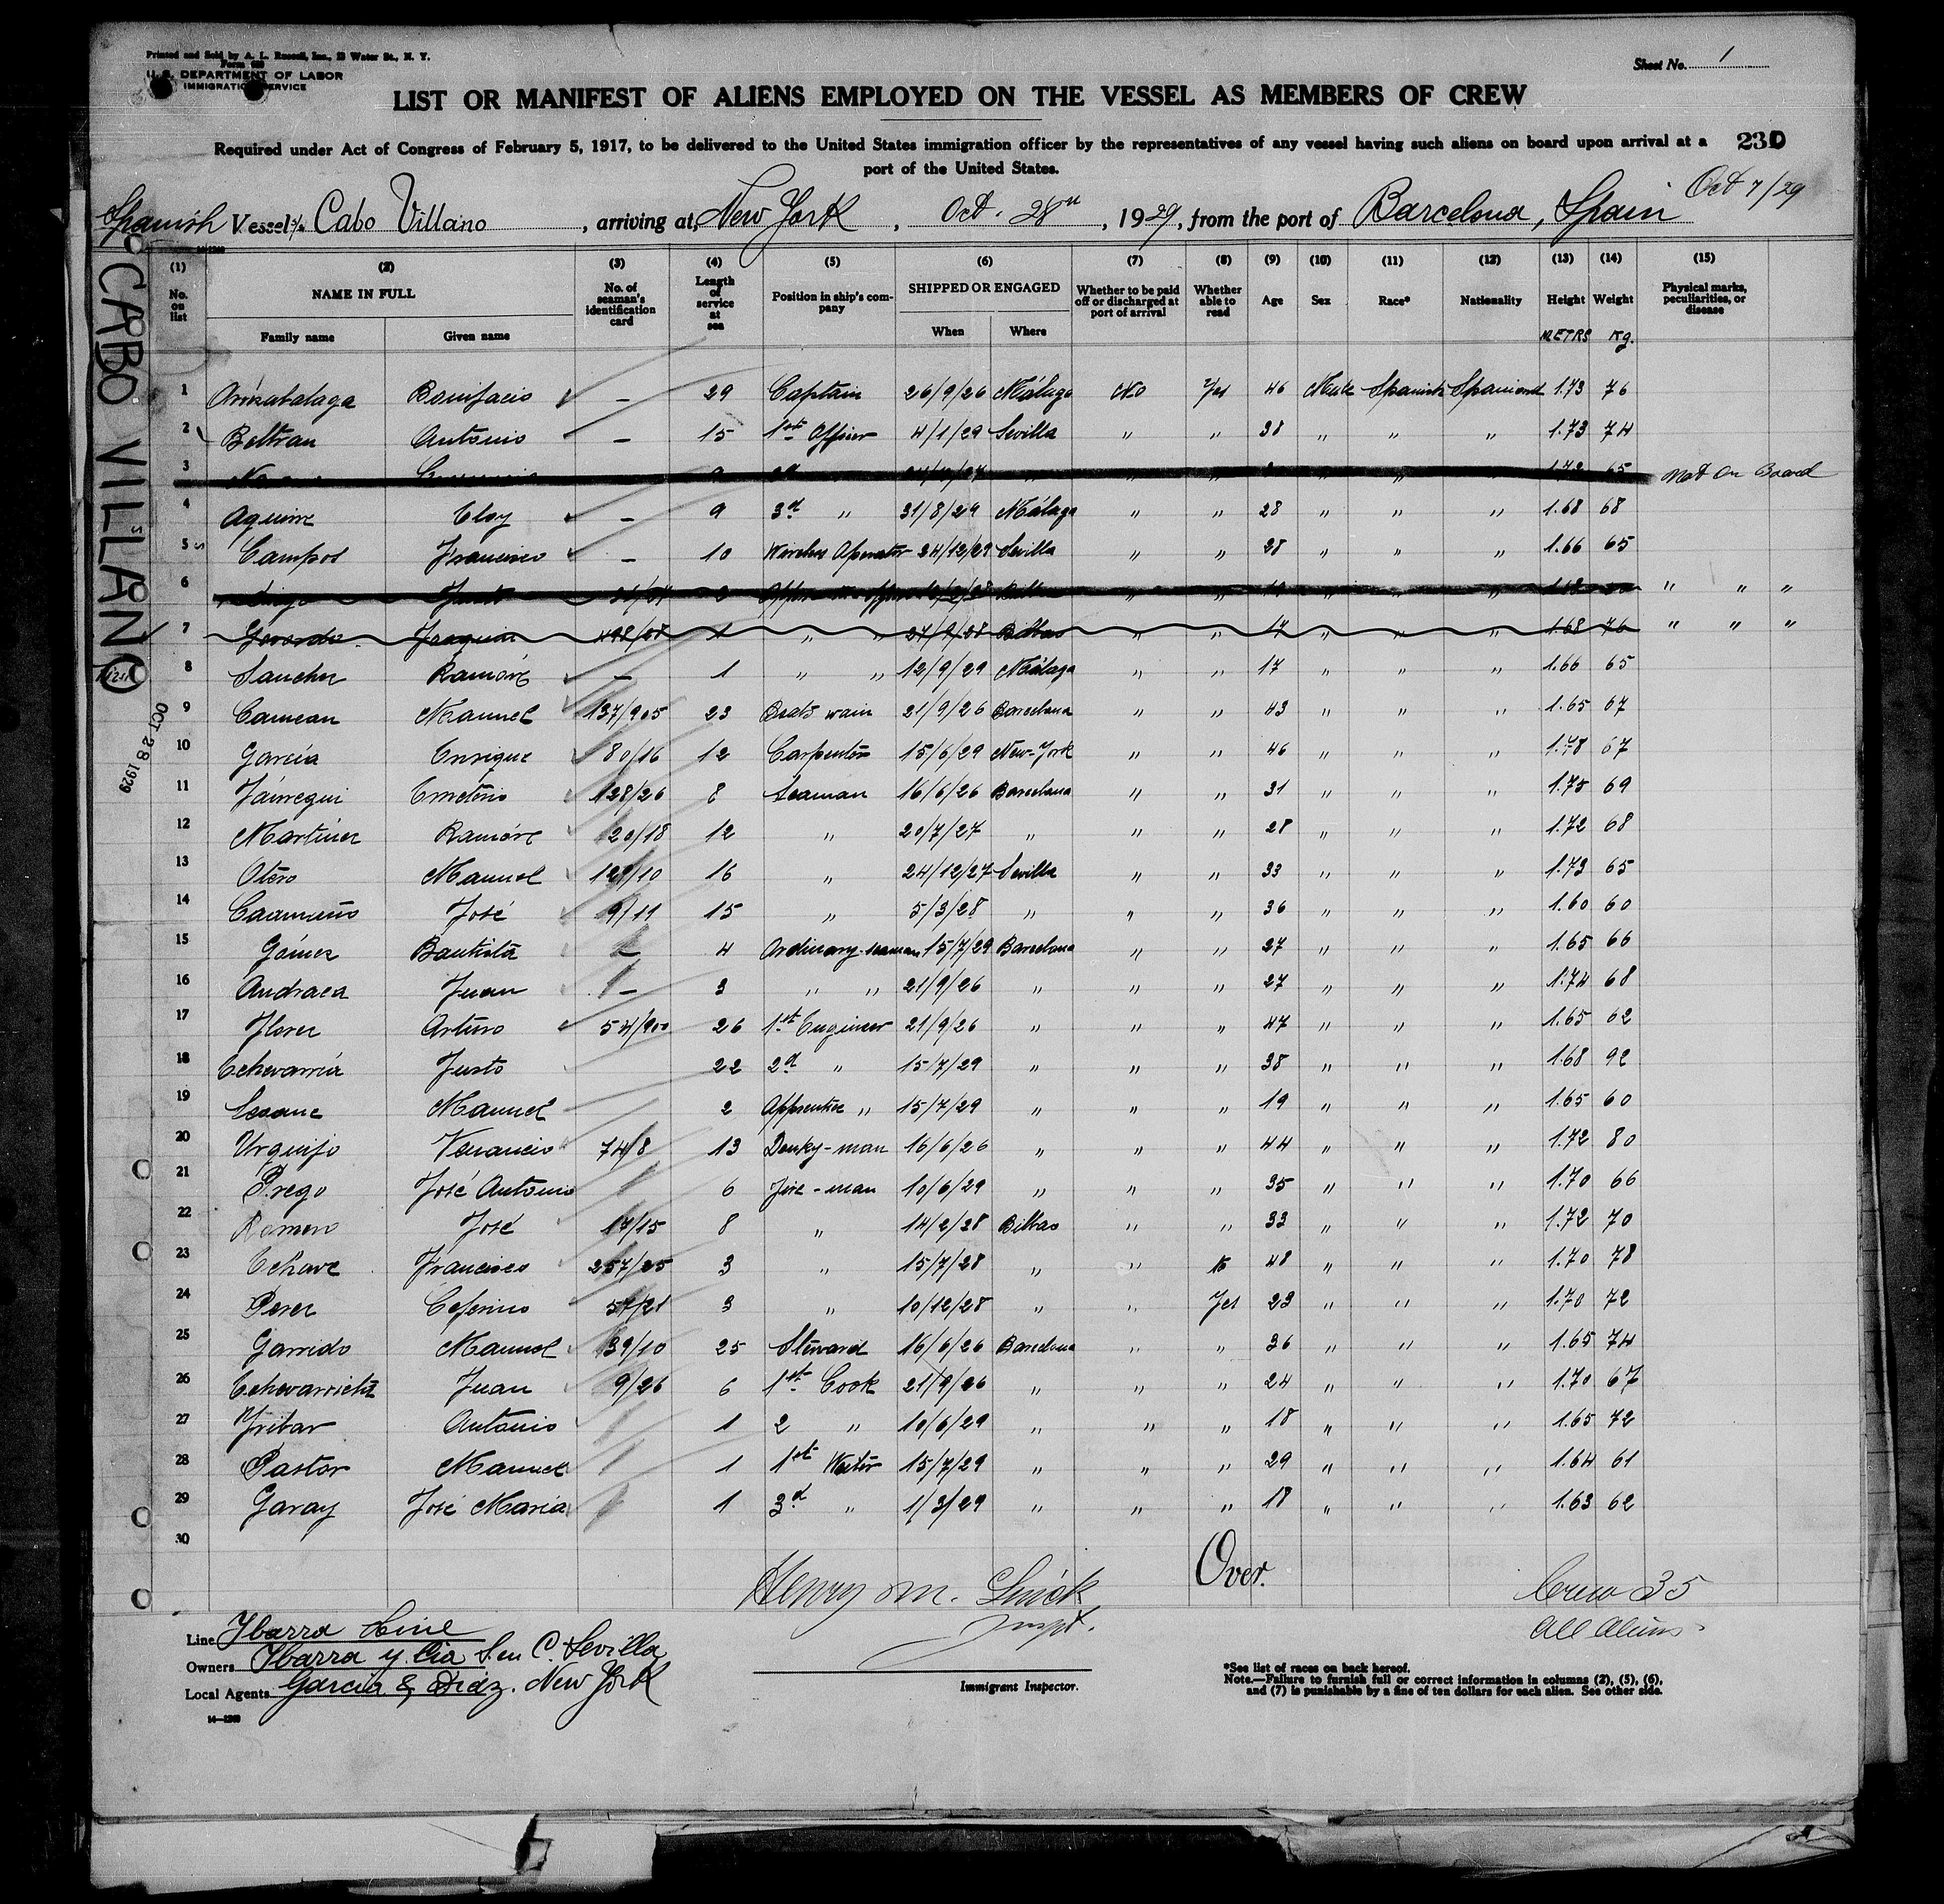 Printed and Sold by A. L. Russell, Inc., 13 Water St., N. Y.
U. S. DEPARTMENT OF LABOR
IMMIGRATION SERVICE
Sheet No. 1
LIST OR MANIFEST OF ALIENS EMPLOYED ON THE VESSEL AS MEMBERS OF CREW
Required under Act of Congress of February 5, 1917, to be delivered to the United States immigration officer by the representatives of any vessel having such aliens on board upon arrival at a
port of the United States.
230
Oct 7/29
Spanish Vessel S/s Cabo Villano, arriving at New York, Oct. 28th, 1929, from the port of Barcelona, Spain
(1) (2) (3) (4) (5) (6) (7) (8) (9) (10) (11) (12) (13) (14) (15)
No. on list NAME IN FULL Family name Given name No. of seaman's identification card Length of service at sea Position in ship's company SHIPPED OR ENGAGED When Where Whether to be paid off or discharged at port of arrival Whether able to read Age Sex Race* Nationality Height Weight Physical marks, peculiarities, or disease
METRS Kg.
1 Bonifacio — 29 Captain 26/9/26 Málaga No Yes 46 Male Spanish Spaniard 1.73 76
2 Beltran Antonio — 15 1st Officer 4/1/29 Sevilla " " 38 " " " 1.73 74
3 Not On Board
4 Aguirre Eloy — 9 3d " 31/8/29 Málaga " " 28 " " " 1.68 68
5 Campos Francisco — 10 Wireless Operator 24/12/29 Sevilla " " 28 " " " 1.66 65
6 " " "
7 Joaquin 492/28 1 " " Bilbao " " 17 " " " 1.68 76 " " "
8 Sanchez Ramón — 1 " " 12/9/29 Málaga " " 17 " " " 1.66 65
9 Camean Manuel 137/905 23 Boats wain 21/9/26 Barcelona " " 43 " " " 1.65 67
10 García Enrique 80/16 12 Carpenter 15/6/29 New-York " " 46 " " " 1.78 67
11 Jáuregui Emeterio 128/26 8 Seaman 16/6/26 Barcelona " " 31 " " " 1.75 69
12 Martinez Ramón 20/18 12 " 20/7/27 " " " 28 " " " 1.72 68
13 Otero Manuel 129/10 16 " 24/12/27 Sevilla " " 33 " " " 1.73 65
14 Caamaño José 9/11 15 " 5/3/28 " " " 36 " " " 1.60 60
15 Gómez Bautista — 4 Ordinary seaman 15/7/29 Barcelona " " 27 " " " 1.65 66
16 Andraca Juan — 3 " " 21/9/26 " " " 27 " " " 1.74 68
17 Florez Arturo 54/900 26 1st Engineer 21/9/26 " " " 47 " " " 1.65 62
18 Echevarria Justo 22 2d " 15/7/29 " " " 38 " " " 1.68 92
19 Manuel 2 Apprentice " 15/7/29 " " " 19 " " " 1.65 60
20 Urquijo Venancio 74/8 13 Donky-man 16/6/26 " " " 44 " " " 1.72 80
21 Prego José Antonio 6 Fire-man 10/6/29 " " " 35 " " " 1.70 66
22 Romero José 17/15 8 " 14/2/28 Bilbao " " 33 " " " 1.72 70
23 Echave Francisco 257/25 3 " 15/7/28 " " No 48 " " " 1.70 78
24 Perez Ceferino 57/21 3 " 10/12/28 " " Yes 23 " " " 1.70 72
25 Garrido Manuel 39/10 25 Steward 16/6/26 Barcelona " " 36 " " " 1.65 74
26 Echevarrieta Juan 9/26 6 1st Cook 21/9/26 " " " 24 " " " 1.70 67
27 Yribar Antonio 1 2 " 10/6/29 " " " 18 " " " 1.65 72
28 Pastor Manuel 1 1st Waiter 15/7/29 " " " 29 " " " 1.64 61
29 Garay José Maria 1 3d " 1/3/29 " " " 18 " " " 1.63 62
30
Over.
Henry M.
Inspt.
Crew 35
All Aliens
Line Ibarra Line
Owners Ibarra y Cia S. en C. Sevilla
Local Agents Garcia & Diaz. New York
Immigrant Inspector.
*See list of races on back hereof.
Note.—Failure to furnish full or correct information in columns (2), (5), (6),
and (7) is punishable by a fine of ten dollars for each alien. See other side.
S CABO VILLANO
OCT 28 1929